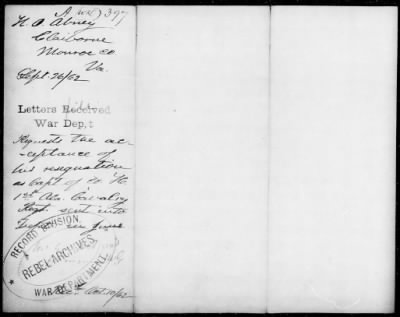 A (WD) 397
H. A. Abney
Claiborne
Monroe co
Va.
Sept. 26/62
Letters Received
War Dep.t
Requests the ac-
-ceptance of
his resignation
as Capt of Co "H"
1st Ala. Cavalry
Regt. sent into
in June
RECORD DIVISION,
REBEL ARCHIVES,
WAR DEPARTMENT.
Rec. Oct. 10/62